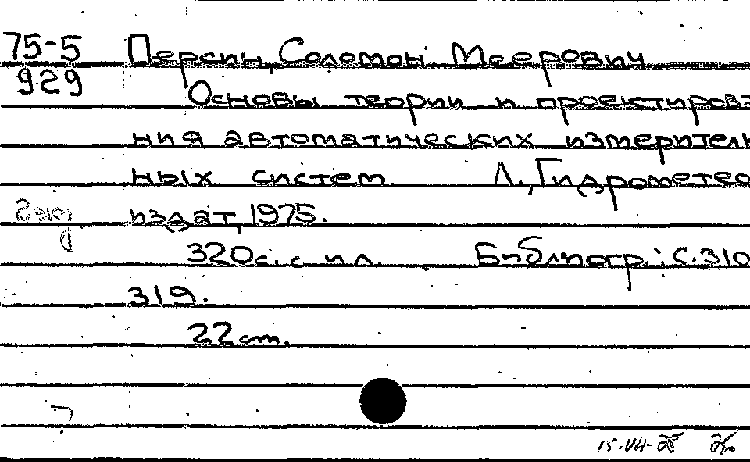 75-5 Персин, Соломон Меерович
929 Основы теории и проектирова
ния автоматических измеритель
ных систем. Л., Гидрометео
издат, 1975.
320с. с ил. Библиогр.: с.310
319.
22см.